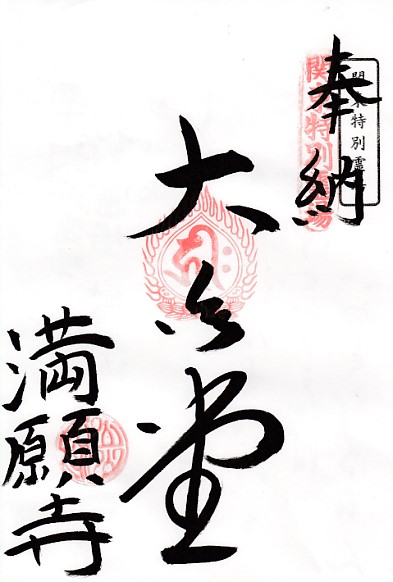 奉納
関東特別霊場
関東特別霊場
大悲堂
満願寺